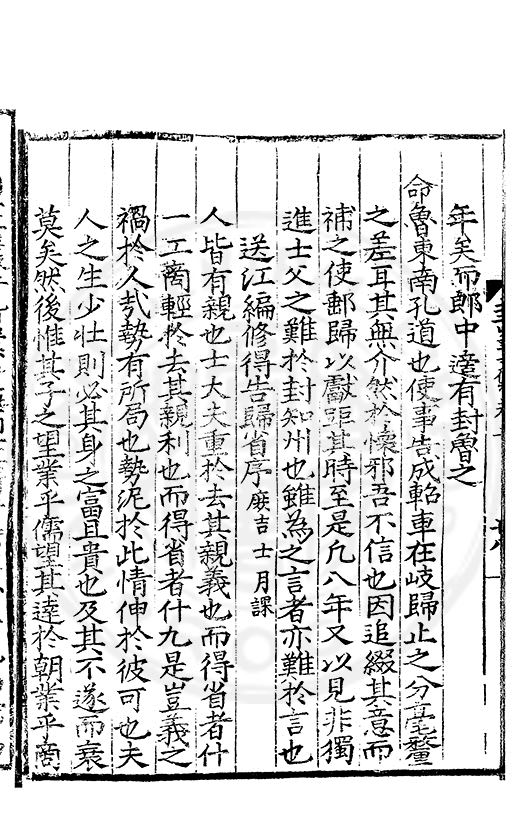 年矣而郎中達有封魯之
命魯東南孔道也使事告成軺車在岐歸止之分毫釐
之差耳其無介然於懷邪吾不信也因追綴其意而
補之使郵歸以獻距其時至是凡八年又以見非獨
進士父之難於封知州也雖為之言者亦難於言也
送江編修得告歸省序 庶吉士月課
人皆有親也士大夫重於去其親義也而得省者什
一工商輕於去其親利也而得省者什九是豈義之
禍於人㦲勢有所局也勢泥於此情伸於彼可也夫
人之生少壯則必其身之富且貴也及其不遂而衰
莫矣然後惟其子之望業乎儒望其達於朝業乎商